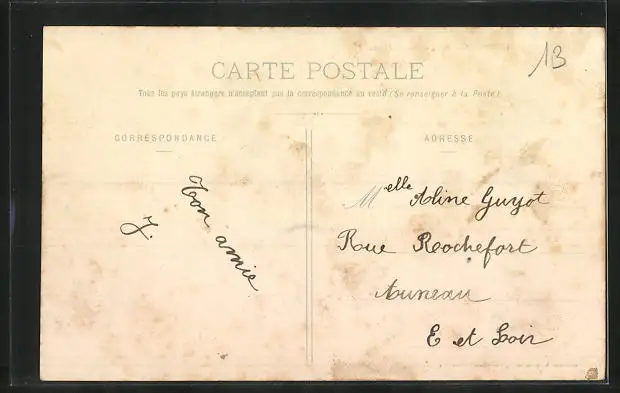 13
CARTE POSTALE
Tous les pays étrangers n'acceptent pas la correspondance au recto (Se renseigner à la Poste)
CORRESPONDANCE
ADRESSE
Ton amie
J.
Melle Aline Guyot
Rue Rochefort
Auneau
E et Loir